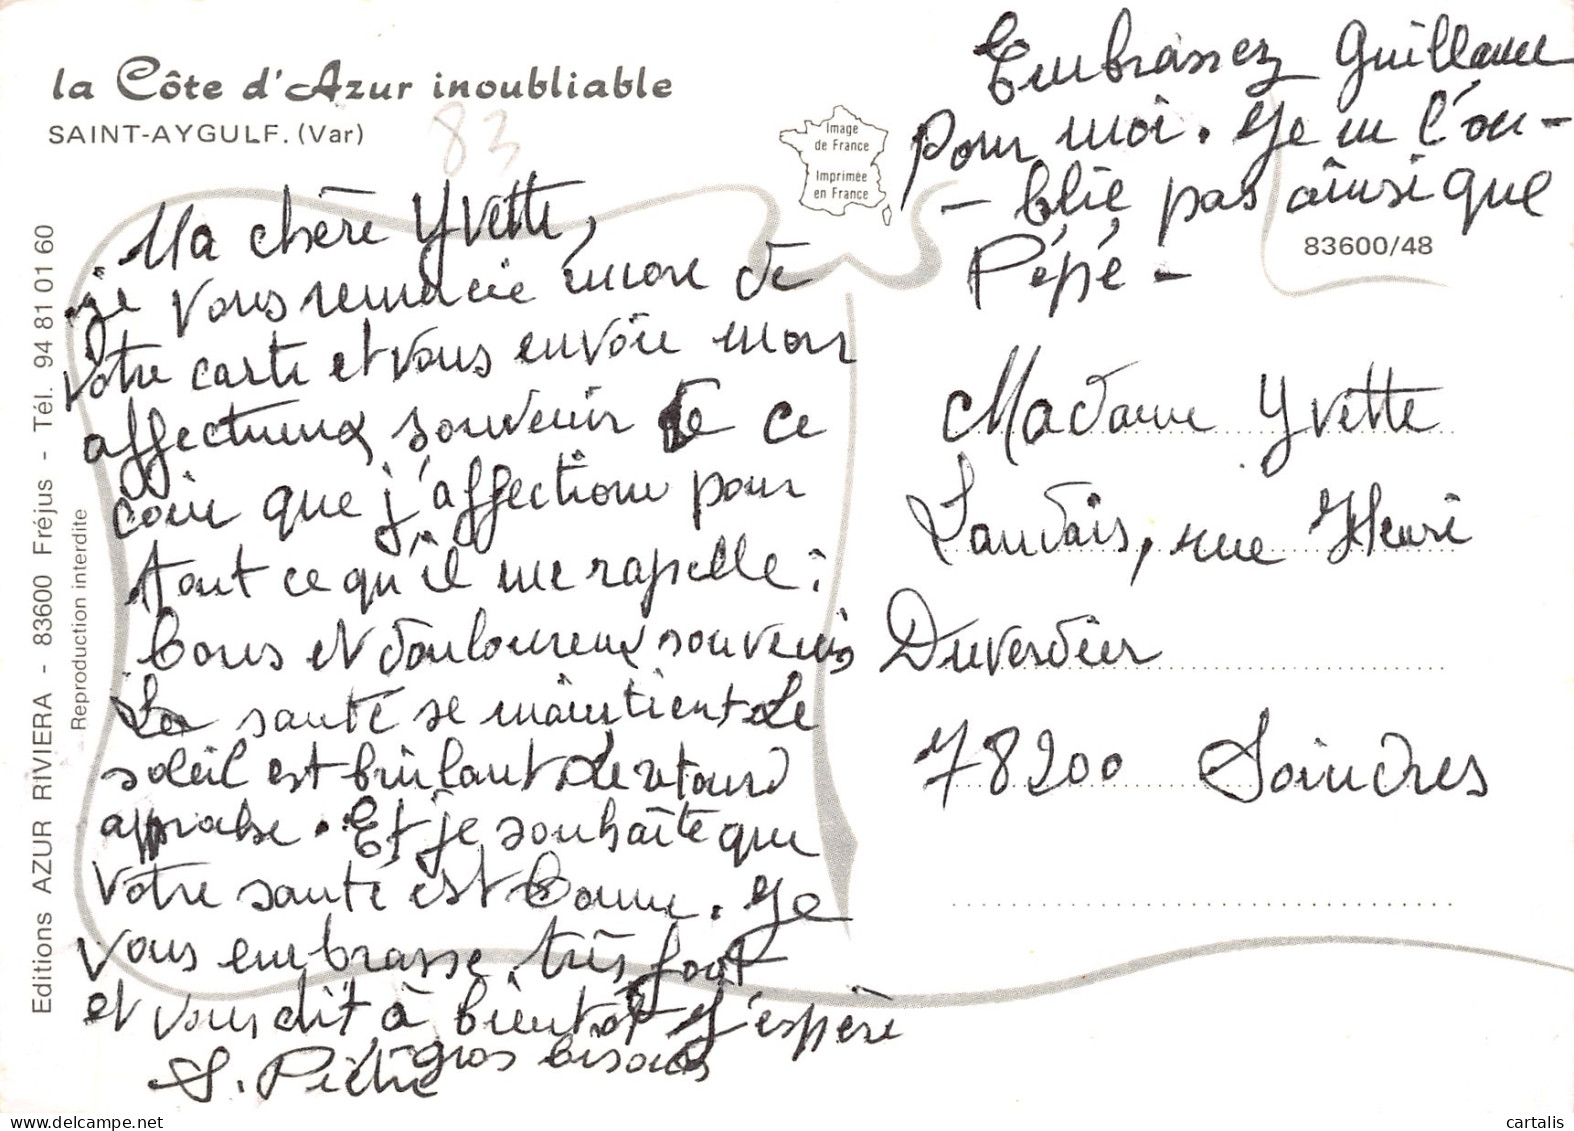 la Côte d'Azur inoubliable
SAINT-AYGULF. (Var)
83
Image
de France
Imprimée
en France
83600/48
Editions AZUR RIVIERA - 83600 Fréjus - Tél. 94 81 01 60
Reproduction interdite
Ma chère Yvette,
je vous remercie encore de
votre carte et vous envoie mon
affectueux souvenir de ce
coin que j'affectionne pour
tout ce qu'il me rappelle :
bons et douloureux souvenirs
La santé se maintient Le
soleil est brillant de retour
Et je souhaite que
votre santé est bonne. Je
vous embrasse très fort
et vous dit à bientôt J'espère
gros bisous
Embrassez Guillaume
Pour moi. Je ne l'ou-
- blie pas ainsi que
Pépé -
Madame Yvette
Landais, rue Henri
Duverdier
78200 Soindres
cartalis
www.delcampe.net